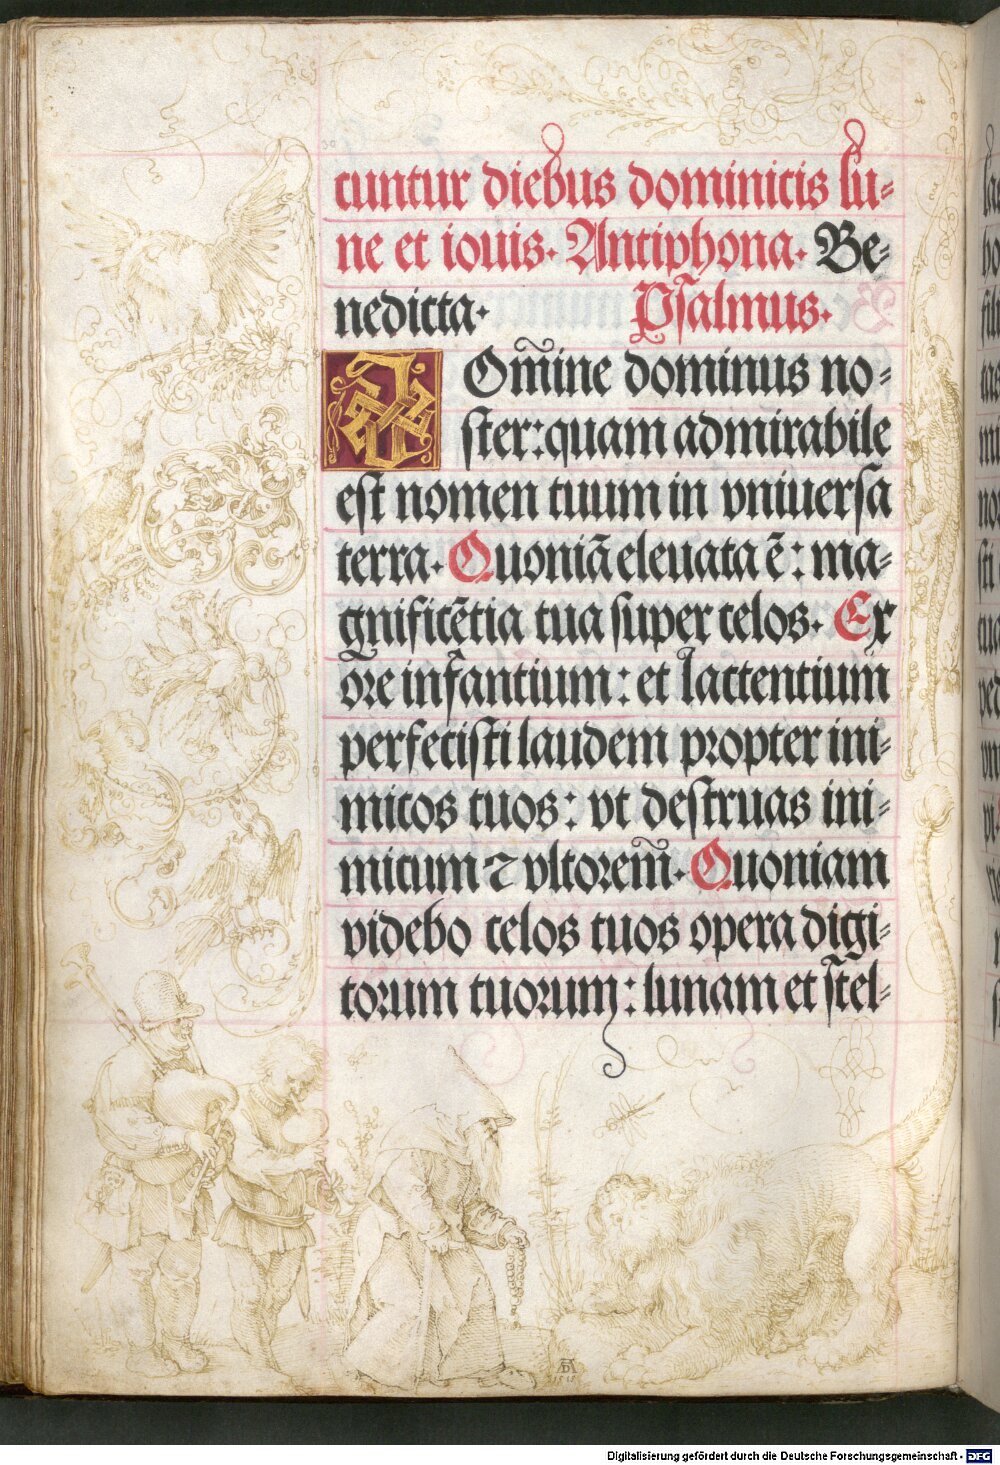 cuntur diebus dominicis lu-
ne et iouis. Antiphona. Be-
nedicta. Psalmus.
Domine dominus no-
ster: quam admirabile
est nomen tuum in vniuersa
terra. Quoniā eleuata ē: ma-
gnificētia tua super celos. Ex
ore infantium: et lactentium
perfecisti laudem propter ini-
micos tuos: vt destruas ini-
micum ⁊ vltorem̄. Quoniam
videbo celos tuos opera digi-
torum tuorum: lunam et stel-
AD
1515
Digitalisierung gefördert durch die Deutsche Forschungsgemeinschaft - DFG